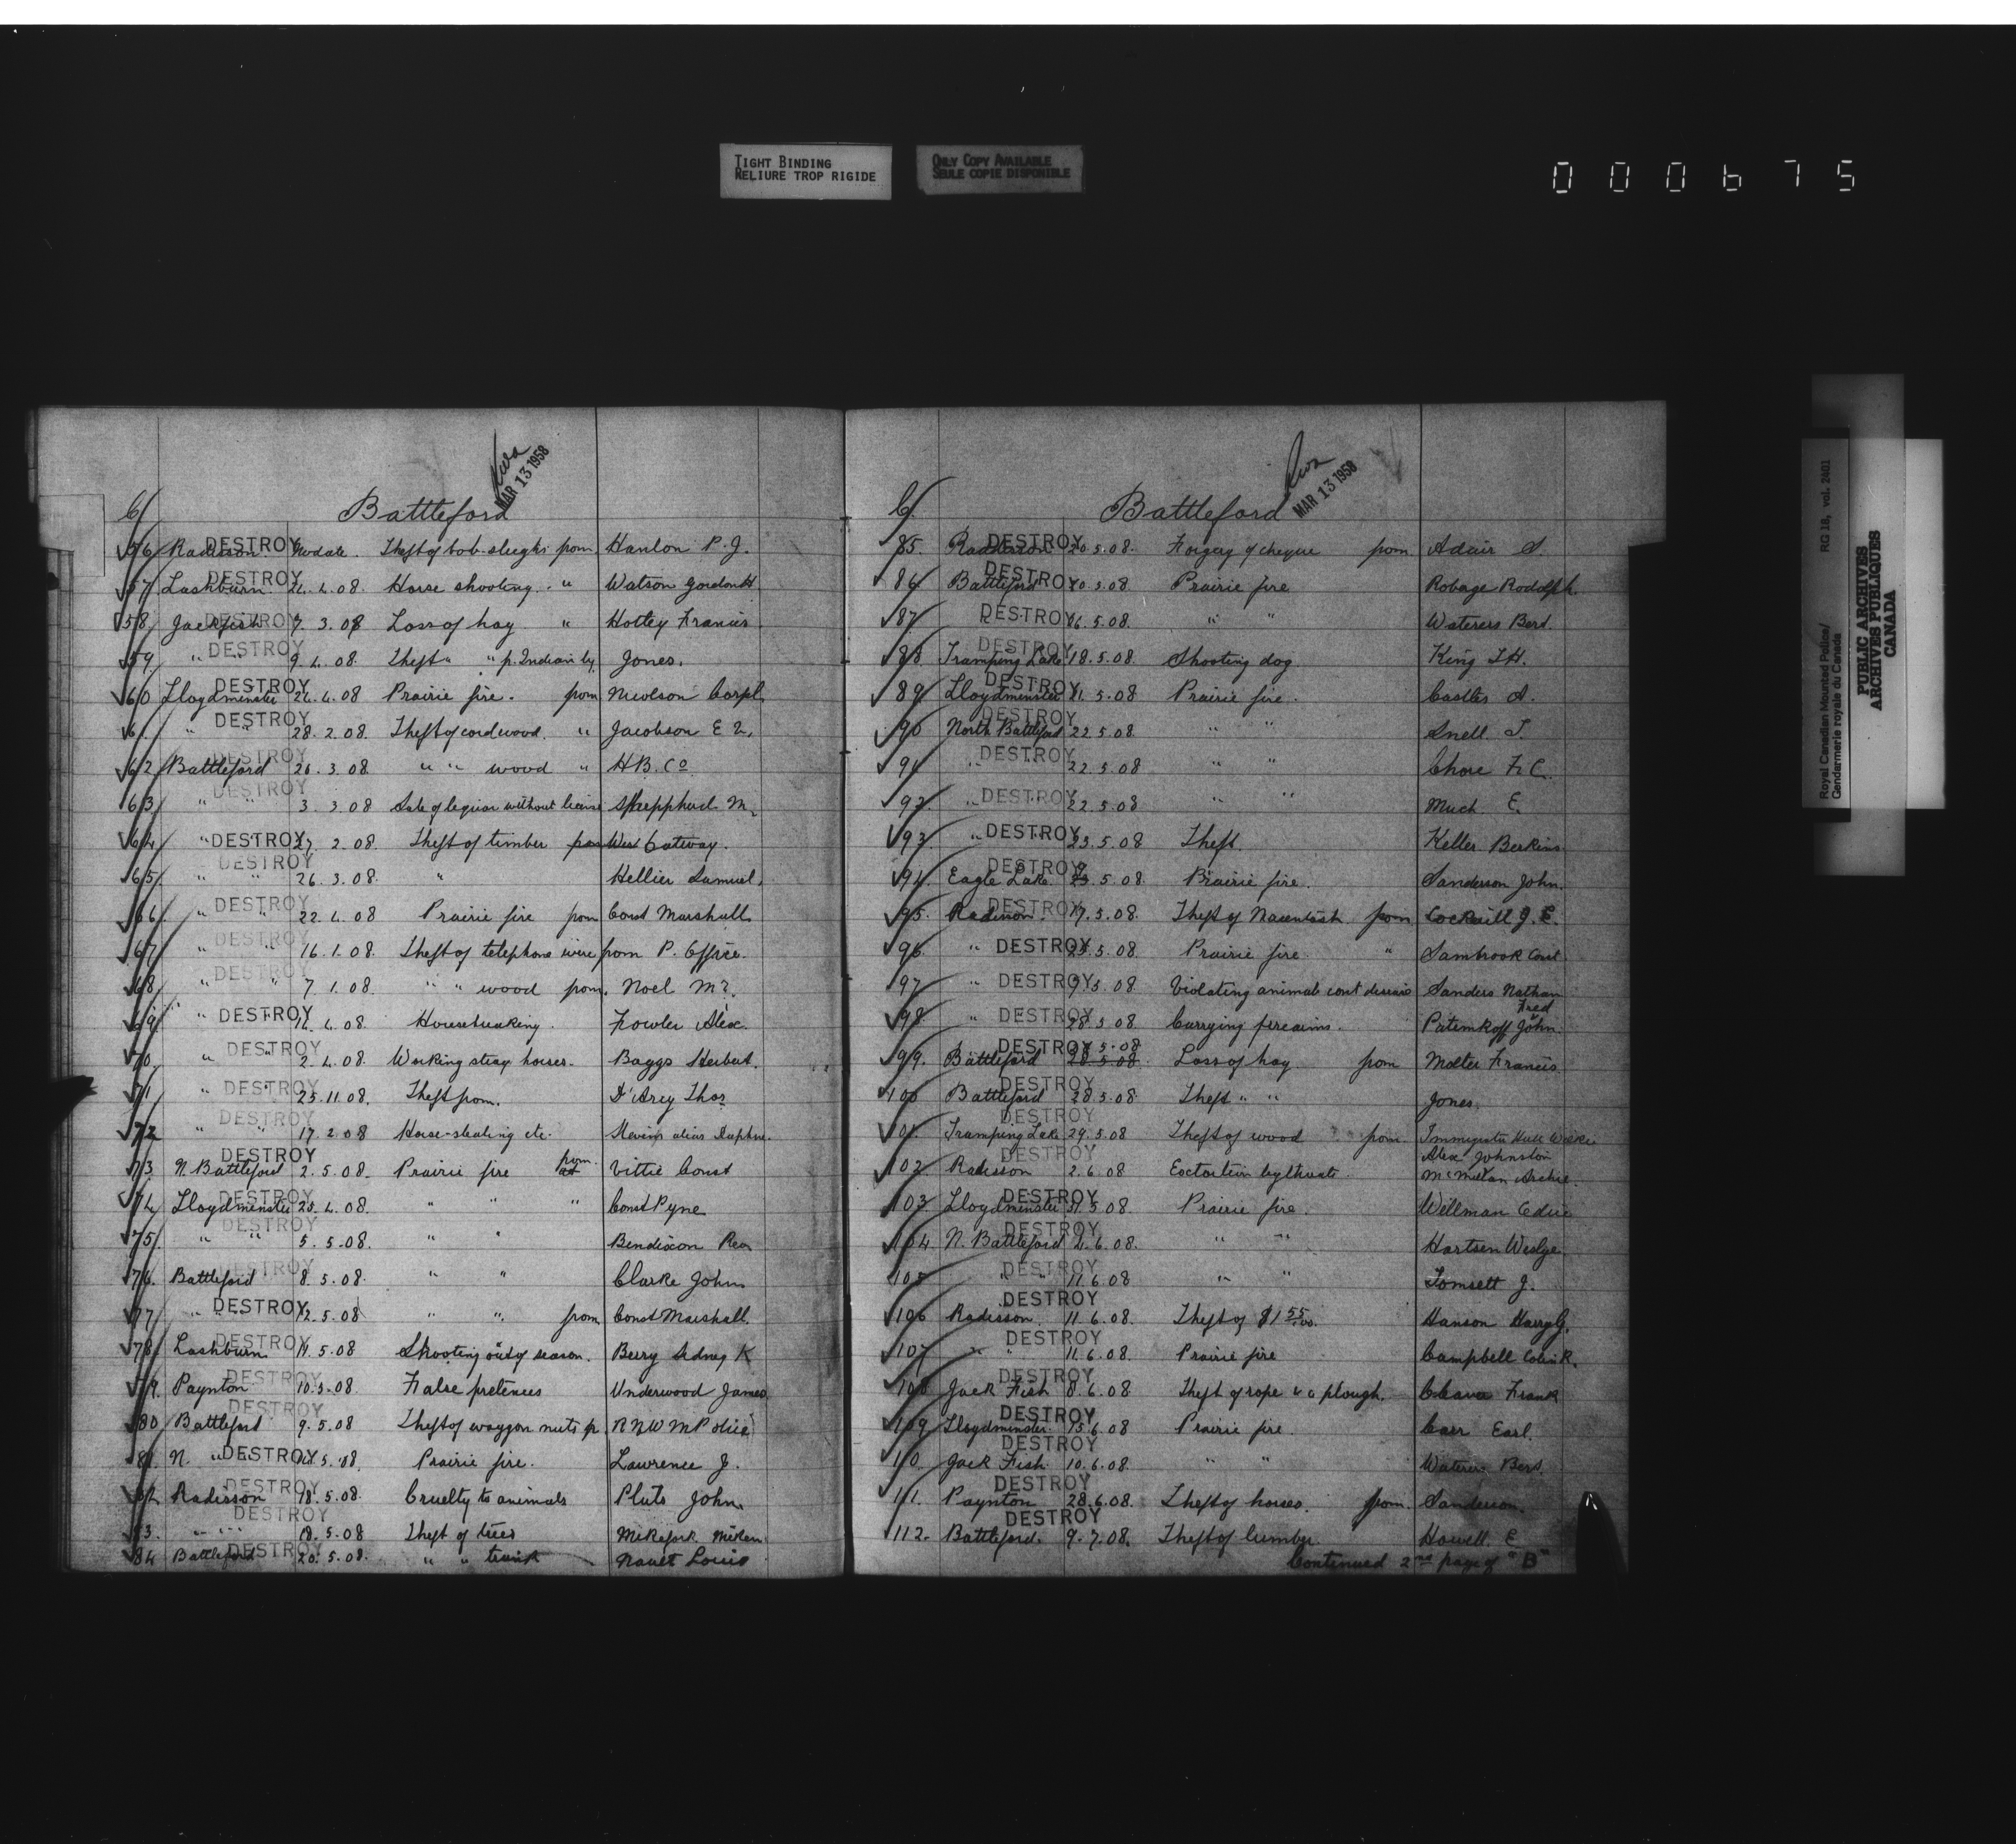 TIGHT BINDING
RELIURE TROP RIGIDE
ONLY COPY AVAILABLE
SEULE COPIE DISPONIBLE
000675
C/
Battleford
MAR 13 1958
56 Radisson DESTROY No date. Theft of bob-sleighs from Hanlon P. J.
57 Lashburn DESTROY .4.08. Horse shooting " Watson Gordon H
58 Jackfish DESTROY 7.3.08 Loss of hay " Hottey Francis
59 " " DESTROY 9.4.08. Theft " " p. Indian by Jones.
60 Lloydminster DESTROY 26.4.08 Prairie fire. from Nicolson Corpl
61. " DESTROY 28.2.08. Theft of cordwood. " Jacobson E
62 Battleford DESTROY 26.3.08. " " wood " H B. Co
63 " " DESTROY 3.3.08 Sale of liquor without license Shepphard M.
64 " DESTROY 27.2.08. Theft of timber West
65 " " DESTROY 26.3.08. " Hellier Samuel.
66 " " DESTROY 22.4.08 Prairie fire from Const Marshall
67 " " DESTROY 16.1.08. Theft of telephone wire from P. Office.
68 " " DESTROY 7.1.08. " " wood from. Noel Mr.
69 " DESTROY .4.08. Housebreaking. Fowler Alex.
70 " DESTROY 2.4.08. Working stray horses. Baggs Herbert.
71 " DESTROY 25.11.08. Theft from. D'Arcy Thos
72 " " DESTROY 17.2.08 Horse-stealing etc. Stevens alias Daphne.
73 N. Battleford DESTROY 2.5.08. Prairie fire from Vittie Const
74 Lloydminster DESTROY 25.4.08. " " " Const Pyne
75 " " DESTROY 5.5.08. " " Bendixon
76. Battleford DESTROY 8.5.08. " " Clarke John
77 " " DESTROY 12.5.08 " " from Const Marshall.
78 Lashburn DESTROY 14.5.08 Shooting out of season. Berry Sidney K
79. Paynton DESTROY 10.5.08 False pretences Underwood James
80 Battleford DESTROY 9.5.08 Theft of waggon nuts p. RNWMPolice
81 N. " DESTROY .5.08. Prairie fire. Lawrence J.
82 Radisson DESTROY 18.5.08. Cruelty to animals Pluto John.
83. " " DESTROY 18.5.08 Theft of trees
84 Battleford DESTROY 20.5.08. " " trunk Nault Louis
C/
Battleford
MAR 13 1958
85. Radisson DESTROY 20.5.08. Forgery of cheque from Adair S.
86 Battleford DESTROY .08 Prairie fire Robage Rodolph.
87 " DESTROY 16.5.08. " " Waterers Bert.
88 Tramping Lake DESTROY 18.5.08. Shooting dog King
89 Lloydminster DESTROY 21.5.08 Prairie fire. Castles A.
90 North Battleford DESTROY 22.5.08 " " Snell
91 " DESTROY 22.5.08 " " Chore F. C.
92. " DESTROY 22.5.08 " " Much E.
93 " DESTROY 23.5.08 Theft Keller Berkins
94. Eagle Lake DESTROY .5.08 Prairie fire. Sanderson John.
95. Radisson DESTROY 17.5.08. Theft of Macintosh from Cockrill J. E.
96. " DESTROY 25.5.08. Prairie fire " Sambrook Const.
97 " DESTROY .5.08 Violating animals cont disease Sanders Nathan
98 " DESTROY 28.5.08 Carrying firearms. Fred Patemkoff John.
99. Battleford DESTROY .5.08 28.5.08. Loss of hay from Molter Francis
100 Battleford DESTROY 28.5.08 Theft " " Jones.
101. Tramping Lake DESTROY 29.5.08 Theft of wood from Immigration Hall
Alex Johnston
102. Radisson DESTROY 2.6.08 Extortion by threats. McMillan Archie.
103 Lloydminster DESTROY 31.5.08 Prairie fire. Wellman
104 N. Battleford DESTROY 4.6.08. " " Hartsen
105 " " DESTROY 11.6.08 " " Tomsett J.
106 Radisson. DESTROY 11.6.08. Theft of Hanson Harry G.
107 " " DESTROY 11.6.08. Prairie fire Campbell Colin R.
108 Jack Fish DESTROY 8.6.08 Theft of rope & a plough. Frank
109 Lloydminster DESTROY 15.6.08 Prairie fire. Carr Earl.
110. Jack Fish DESTROY 10.6.08. " " Waterer Bert.
111. Paynton DESTROY 28.6.08. Theft of horses. from Sanderson.
112. Battleford. DESTROY 9.7.08. Theft of lumber. Howell E.
Continued 2nd page of "B"
Royal Canadian Mounted Police/
Gendarmerie royale du Canada
RG 18, vol. 2401
PUBLIC ARCHIVES
ARCHIVES PUBLIQUES
CANADA